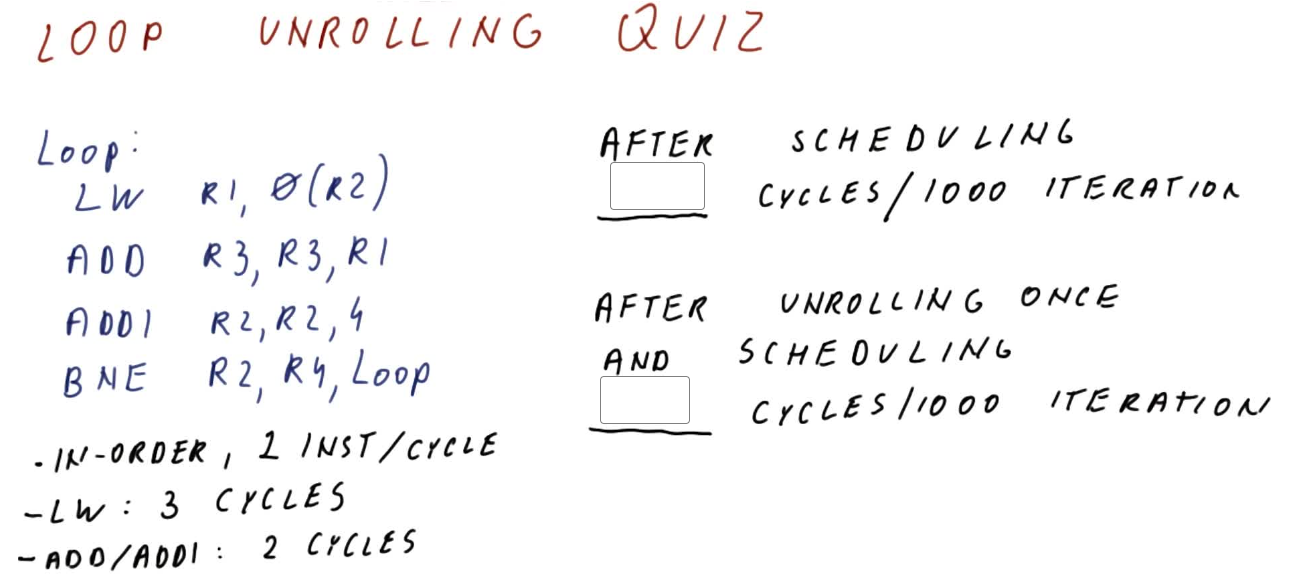 LOOP UNROLLING QUIZ
Loop:
LW R1, 0(R2)
ADD R3, R3, R1
ADDI R2, R2, 4
BNE R2, R4, Loop
- IN-ORDER, 1 INST/CYCLE
- LW: 3 CYCLES
- ADD/ADDI: 2 CYCLES
AFTER SCHEDULING
CYCLES/1000 ITERATION
AFTER UNROLLING ONCE
AND SCHEDULING
CYCLES/1000 ITERATION